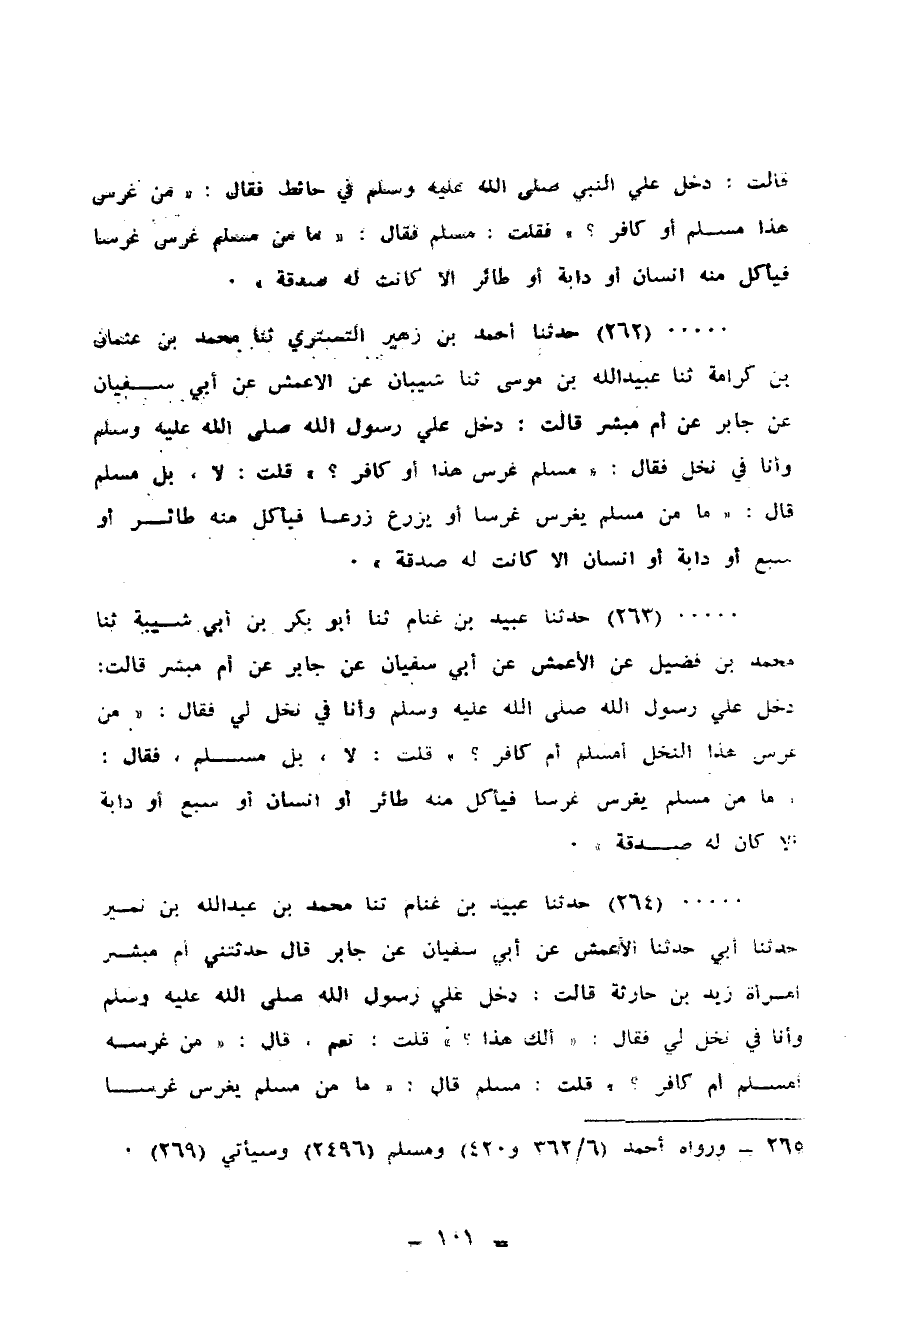 قالت : دخل علي النبي صلى الله عليه وسلم في حائط فقال : « من غرس
هذا مسلم أو كافر ؟ » فقلت : مسلم فقال : « ما من مسلم غرس غرسا
فيأكل منه انسان أو دابة أو طائر الا كانت له صدقة » ٠
٠٠٠٠٠ (٢٦٢) حدثنا أحمد بن زهير التستري ثنا محمد بن عثمان
بن كرامة ثنا عبيدالله بن موسى ثنا شيبان عن الاعمش عن أبي سفيان
عن جابر عن أم مبشر قالت : دخل علي رسول الله صلى الله عليه وسلم
وأنا في نخل فقال : « مسلم غرس هذا أو كافر ؟ » قلت : لا ، بل مسلم
قال : « ما من مسلم يغرس غرسا أو يزرع زرعا فيأكل منه طائر أو
سبع أو دابة أو انسان الا كانت له صدقة » ٠
٠٠٠٠٠ (٢٦٣) حدثنا عبيد بن غنام ثنا أبو بكر بن أبي شيبة ثنا
محمد بن فضيل عن الأعمش عن أبي سفيان عن جابر عن أم مبشر قالت:
دخل علي رسول الله صلى الله عليه وسلم وأنا في نخل لي فقال : « من
غرس هذا النخل أمسلم أم كافر ؟ » قلت : لا ، بل مسلم ، فقال :
، ما من مسلم يغرس غرسا فيأكل منه طائر أو انسان أو سبع أو دابة
الا كان له صدقة » ٠
٠٠٠٠٠ (٢٦٤) حدثنا عبيد بن غنام ثنا محمد بن عبدالله بن نمير
حدثنا أبي حدثنا الأعمش عن أبي سفيان عن جابر قال حدثتني أم مبشر
امرأة زيد بن حارثة قالت : دخل علي رسول الله صلى الله عليه وسلم
وأنا في نخل لي فقال : « ألك هذا ؟ » قلت : نعم ، قال : « من غرسه
أمسلم أم كافر ؟ » قلت : مسلم قال : « ما من مسلم يغرس غرسا
٢٦٥ ـ ورواه أحمد (٣٦٢/٦ و٤٢٠) ومسلم (٢٤٩٦) وسيأتي (٢٦٩) ٠
ـ ١٠١ ـ